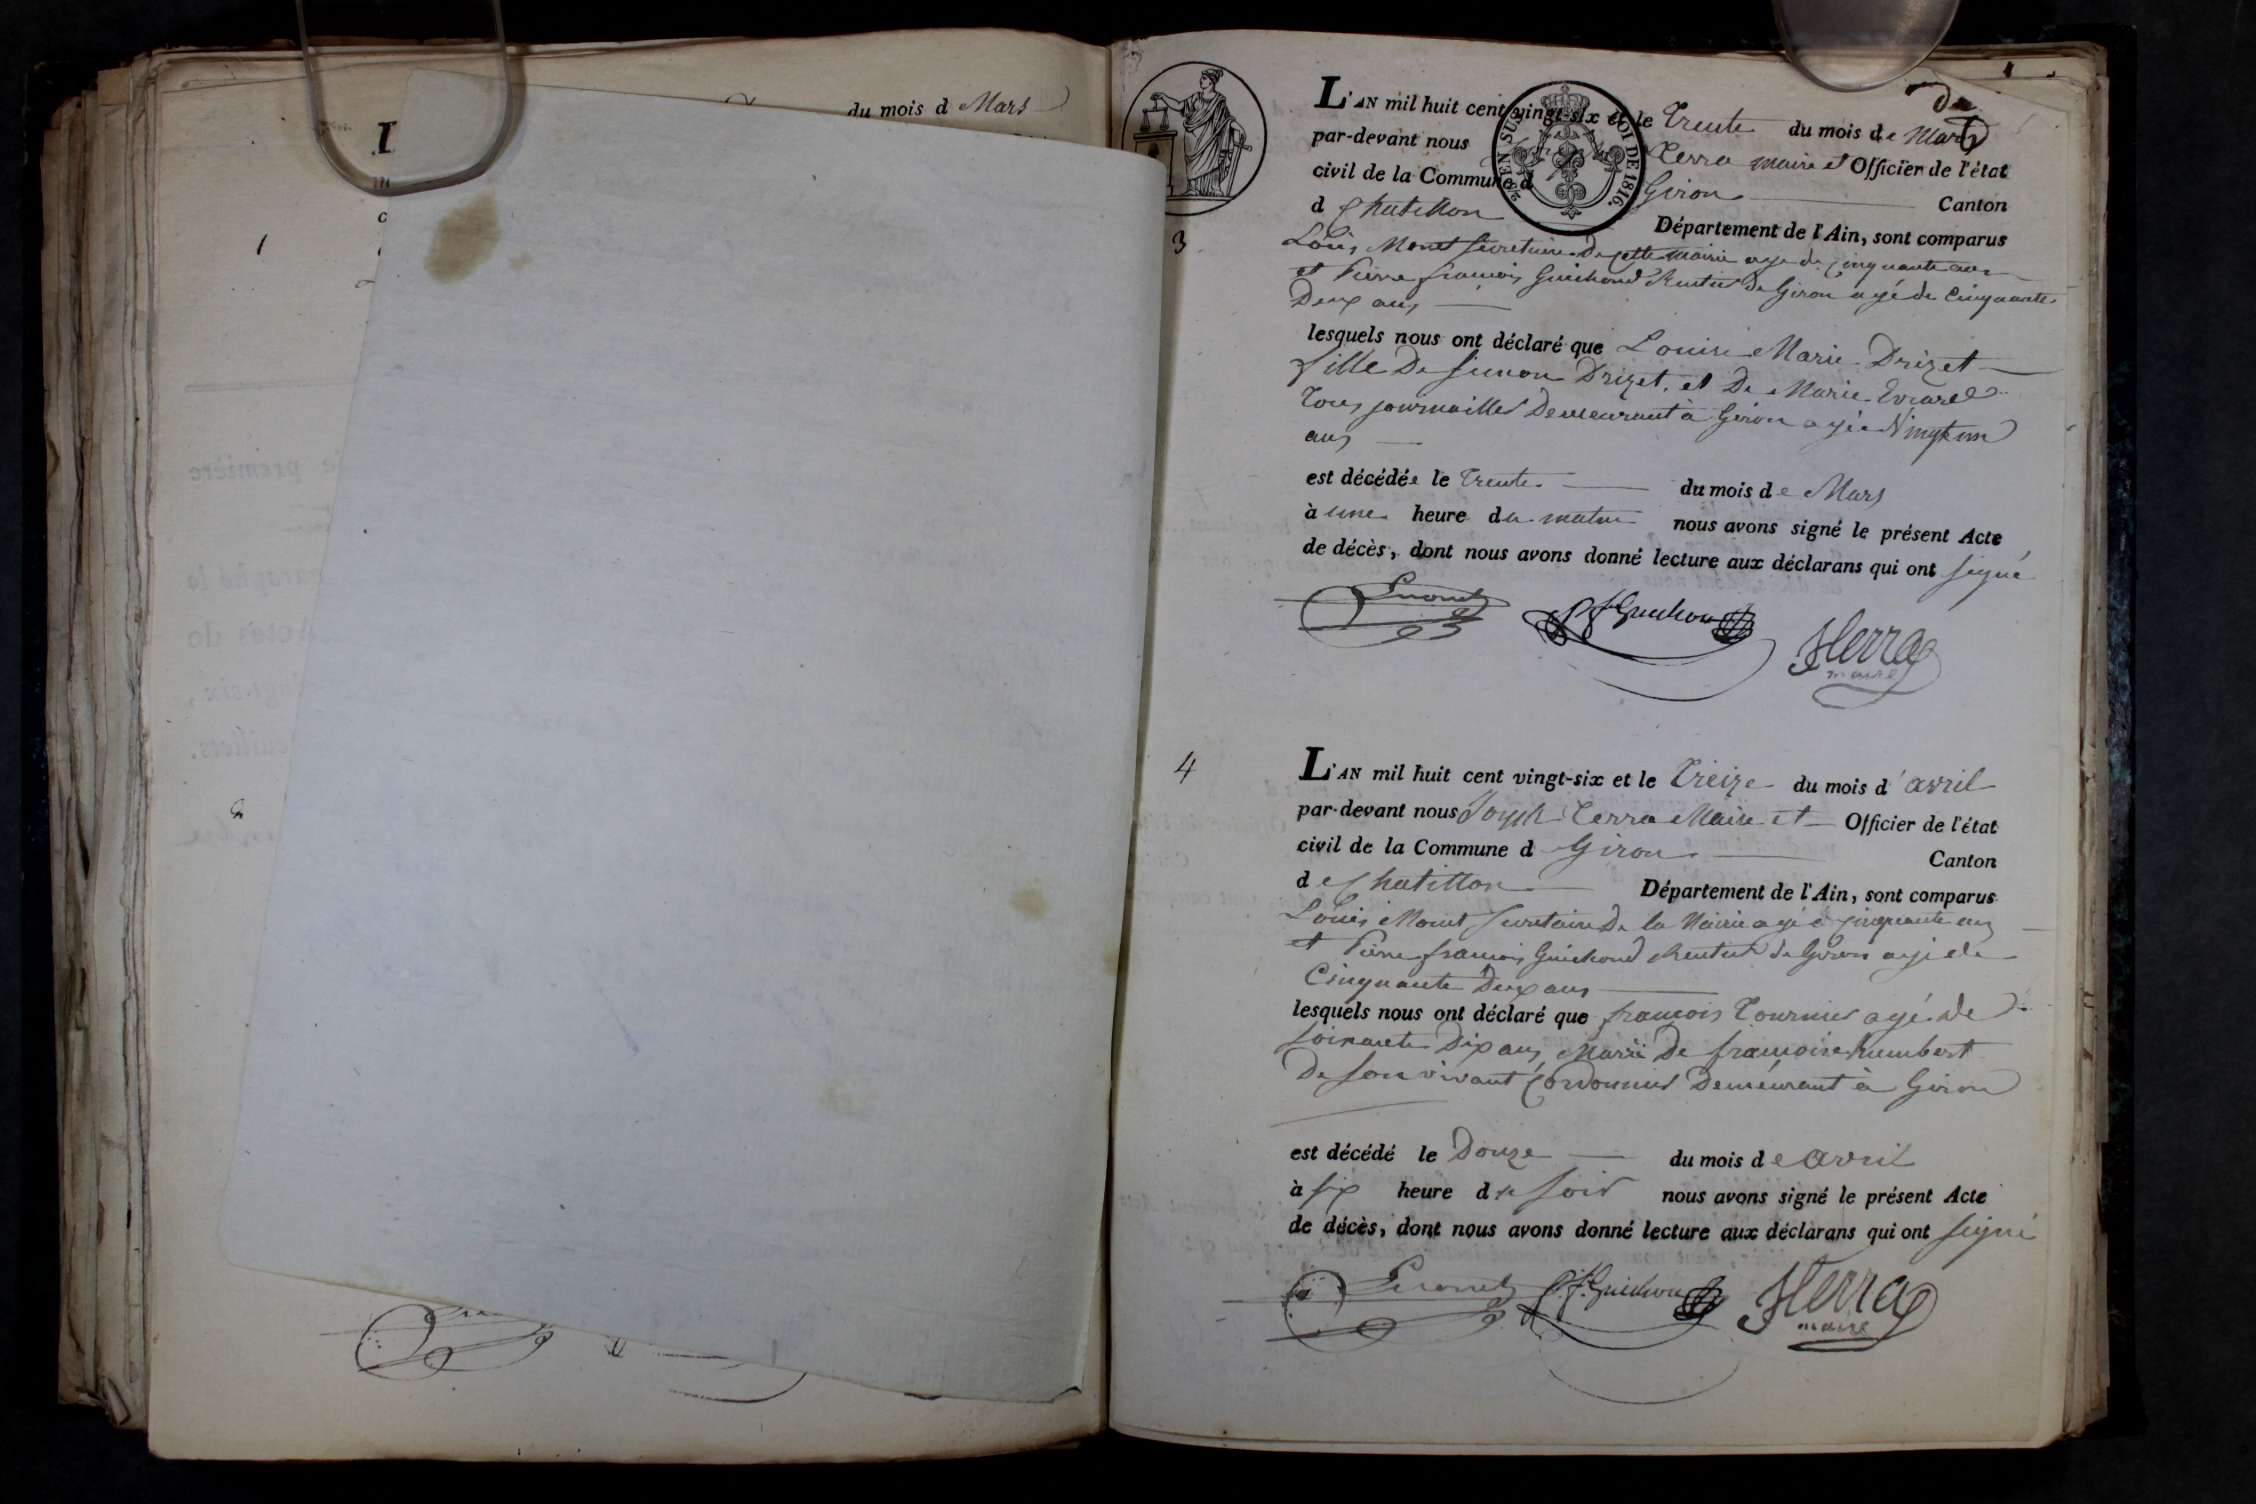 du mois d Mars
1
2
L'AN mil huit cent vingt-six et le Trente du mois de Mars
par-devant nous Terra maire et Officier de l'état
civil de la Commune d Giron Canton
d Chatillon Département de l'Ain, sont comparus
2e EN SUS LOI DE 1816.
3
Louis Monet secretaire de cette mairie agé de cinquante ans
et Pierre françois Guichond Rentier de Giron agé de Cinquante
Deux ans
lesquels nous ont déclaré que Louise Marie Drizet
fille De simon Drizet, et De Marie Evrard
Tous journaillers Demeurant à Giron agée Vingt un
ans
est décédée le Trente du mois de Mars
à une heure du matin nous avons signé le présent Acte
de décès, dont nous avons donné lecture aux déclarans qui ont signé
Lmonet P f Guichon JTerra
maire
4
L'AN mil huit cent vingt-six et le Treize du mois d'avril
par-devant nous Joseph Terra Maire et Officier de l'état
civil de la Commune d Giron Canton
de Chatillon Département de l'Ain, sont comparus
Louis Monet secretaire De la Mairie agé cinquante ans
et Pierre françois Guichond Rentier de Giron agé de
Cinquante Deux ans
lesquels nous ont déclaré que françois Tournier agé de
soixante Dix ans, Marié De françoise humbert
De son vivant Cordonnier Demeurant à Giron
est décédé le Douze du mois de avril
à six heure du soir nous avons signé le présent Acte
de décès, dont nous avons donné lecture aux déclarans qui ont signé
Lmonet P. f. Guichon JTerra
maire